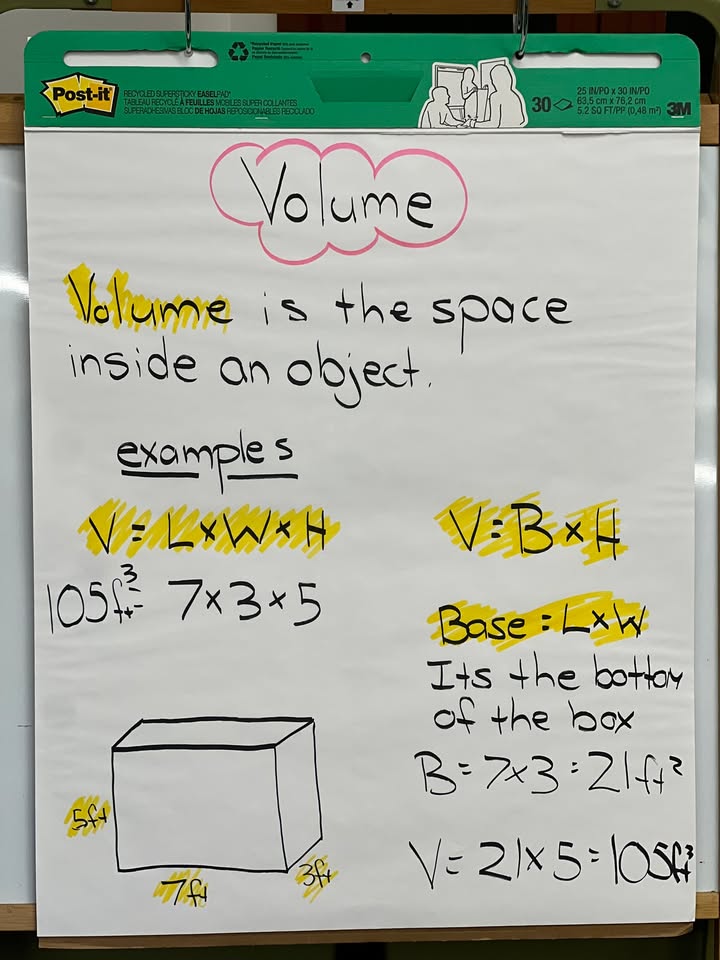 Post-it
RECYCLED SUPERSTICKY EASELPAD*
TABLEAU RECYCLÉ À FEUILLES MOBILES SUPER COLLANTES
SUPERADHESIVAS BLOC DE HOJAS REPOSICIONABLES RECICLADO
30
25 IN/PO x 30 IN/PO
63,5 cm x 76,2 cm
5.2 SQ FT/PP (0,48 m²)
3M
Volume
Volume is the space
inside an object.
examples
V = L x W x H
105ft³= 7 x 3 x 5
5ft
7ft
3ft
V = B x H
Base = L x W
Its the bottom
of the box
B = 7x3 = 21ft²
V = 21 x 5 = 105ft³